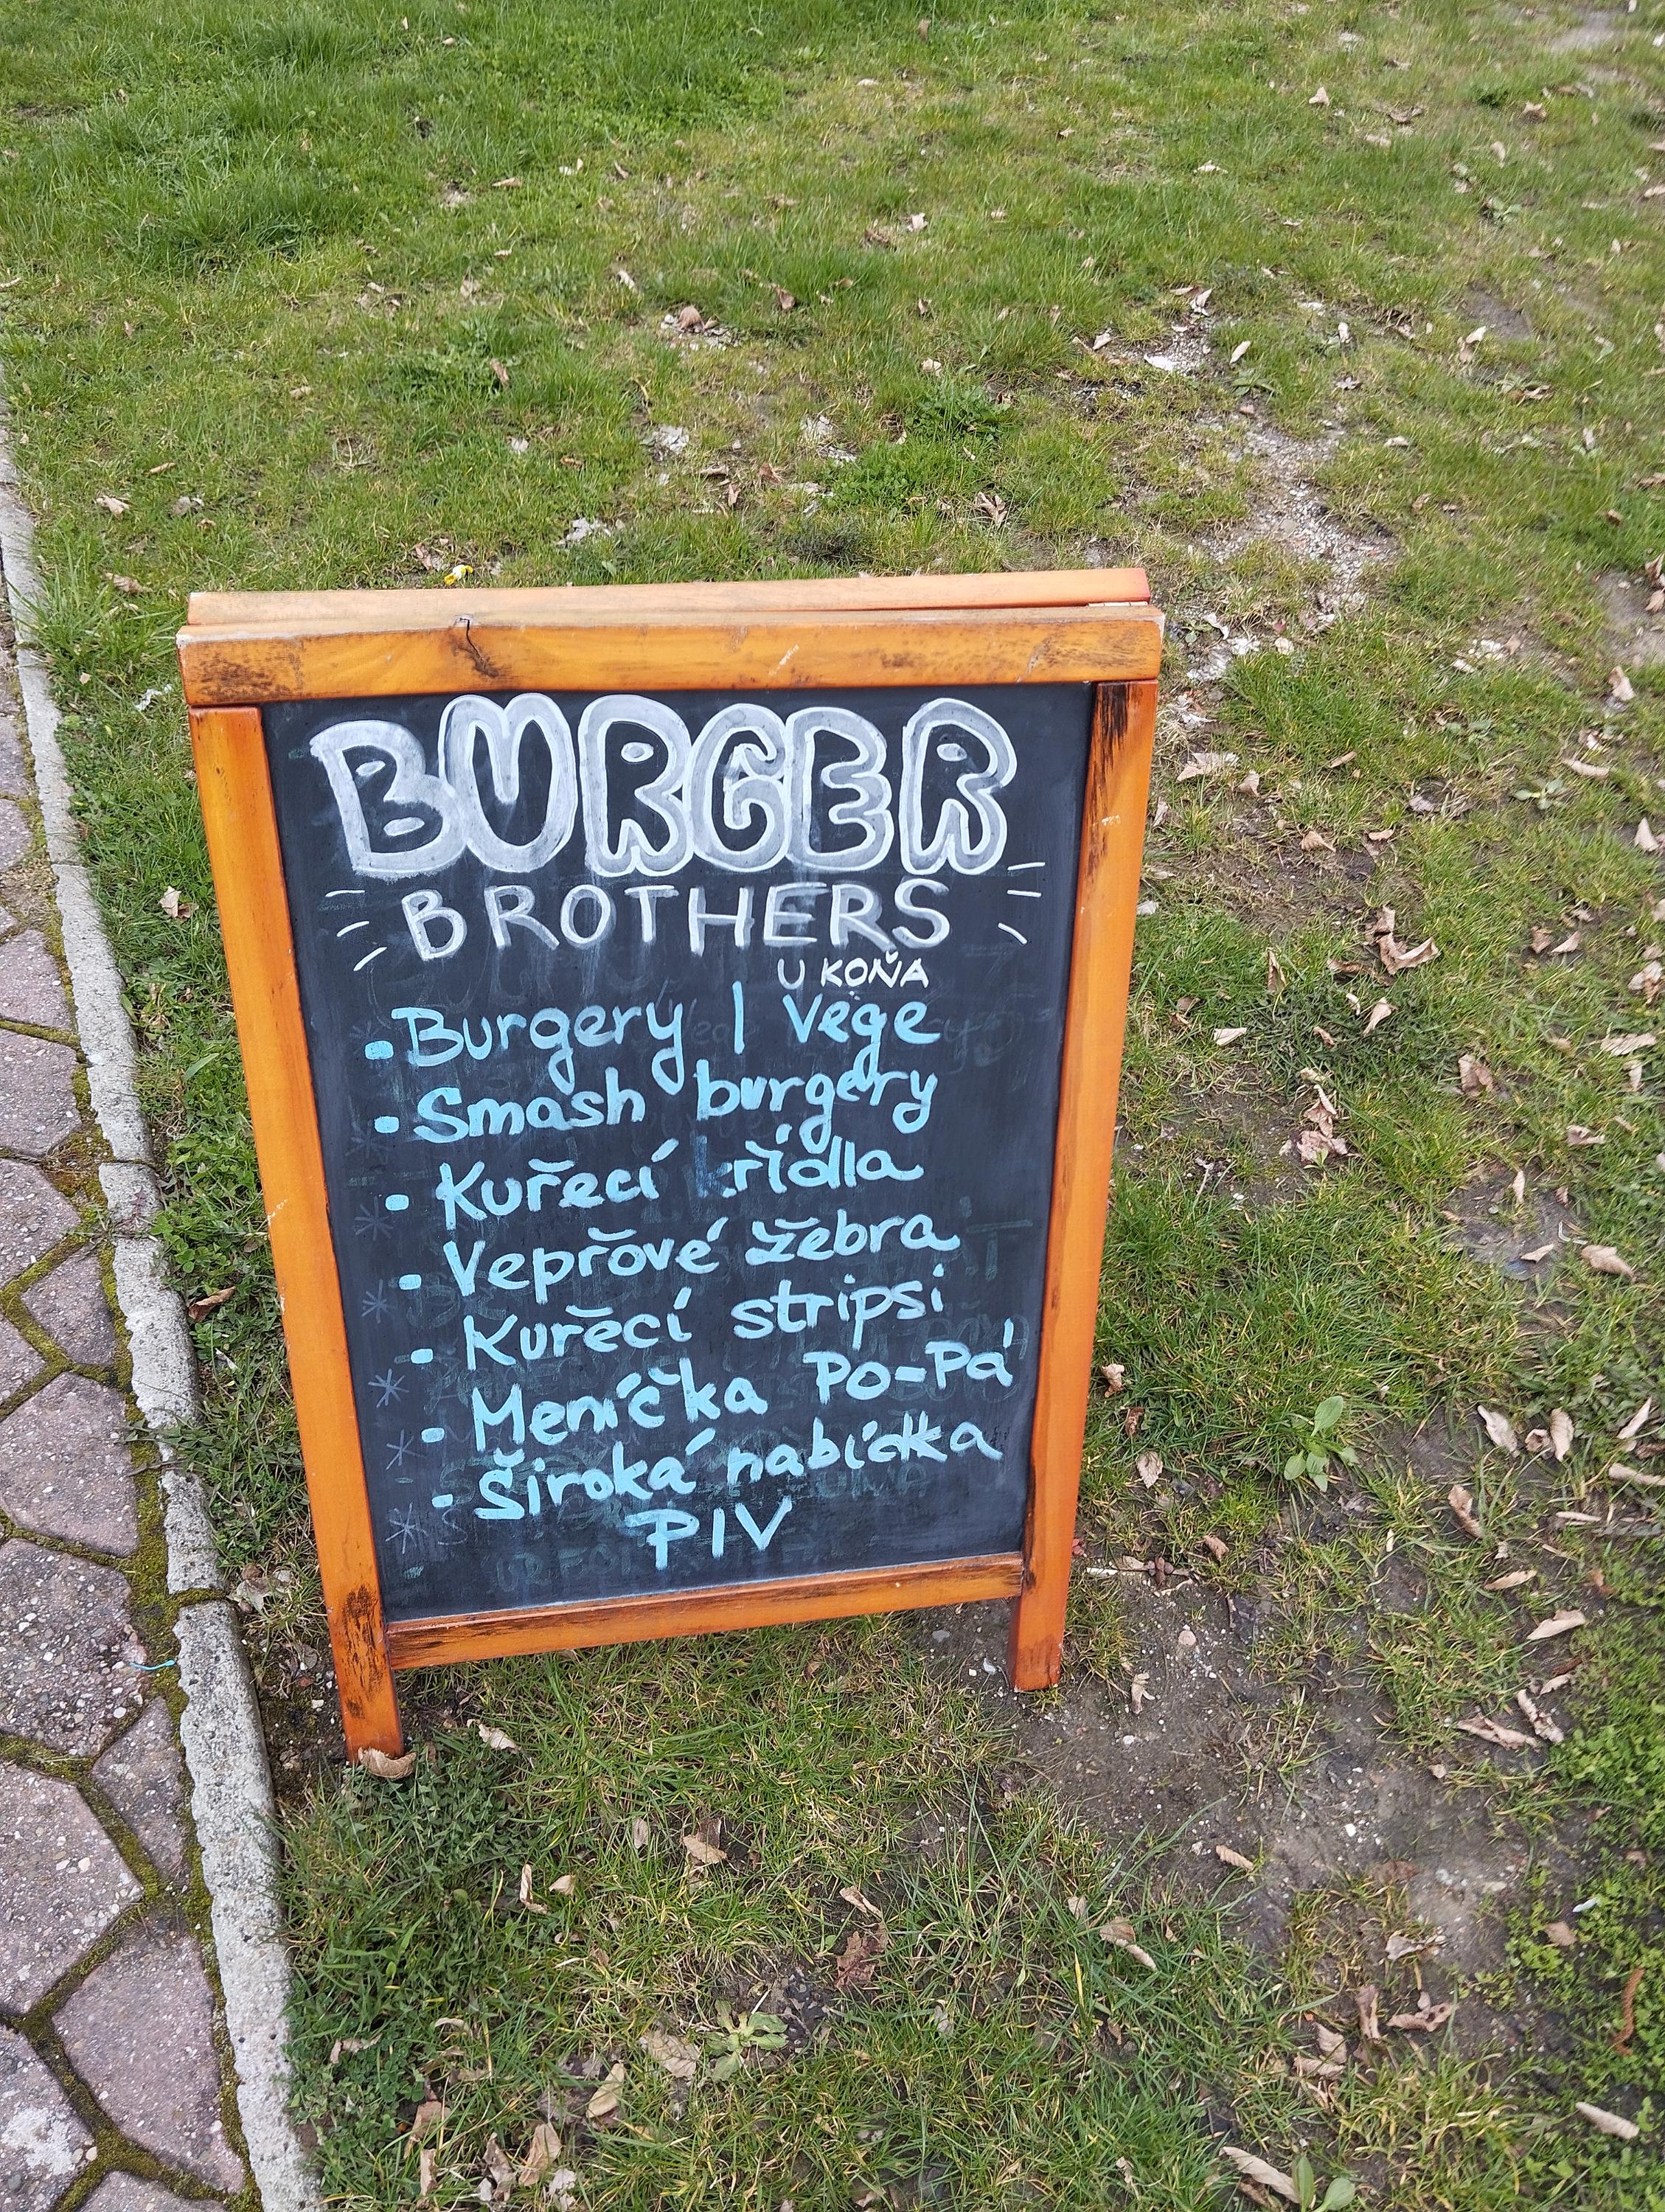 BURGER
BROTHERS
U KOŇA
• Burgery | Vege
• Smash burgery
• Kuřecí křídla
• Vepřové žebra
• Kuřecí stripsi
• Meníčka Po-Pá
• Široká nabídka
PIV